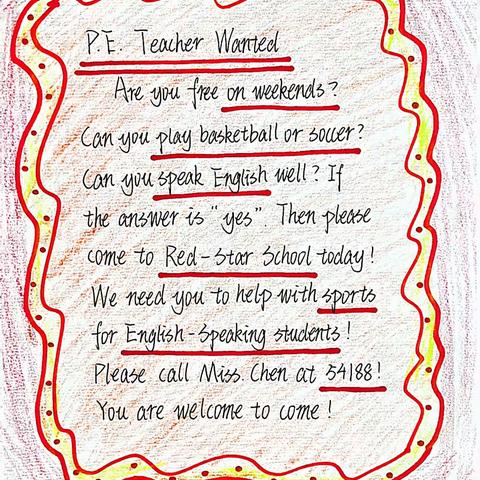 P.E. Teacher Wanted
Are you free on weekends?
Can you play basketball or soccer?
Can you speak English well? If
the answer is "yes". Then please
come to Red-Star School today!
We need you to help with sports
for English-Speaking students!
Please call Miss. Chen at 54188!
You are welcome to come!